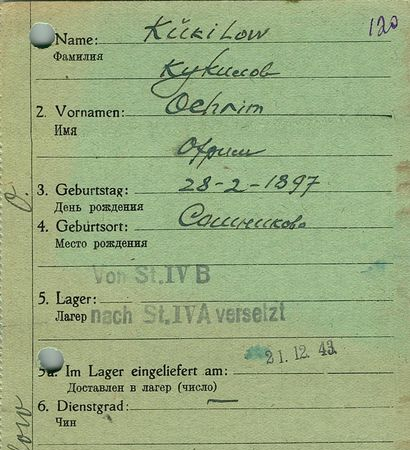 120
Name: Kükilow
Фамилия
Кукилов
2. Vornamen: Ochrim
Имя
Охрим
3. Geburtstag: 28-2-1897
День рождения
4. Geburtsort: Сошников
Место рождения
Von St.IV B
5. Lager:
Лагер nach St.IVA versetzt
21.12.43.
5a. Im Lager eingeliefert am:
Доставлен в лагер (число)
6. Dienstgrad: —
Чин